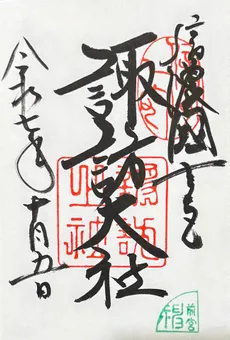 信濃國一之宮
諏訪大社
令和七年十月五日
諏訪大社
前宮